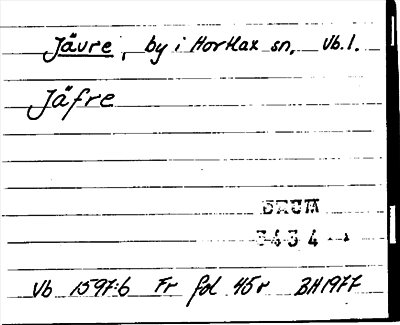 Jävre, by i Hortlax sn, Vb. l.
Jäfre
DAUM
3434
Vb 1597:6 Fr fol 45r BH1977